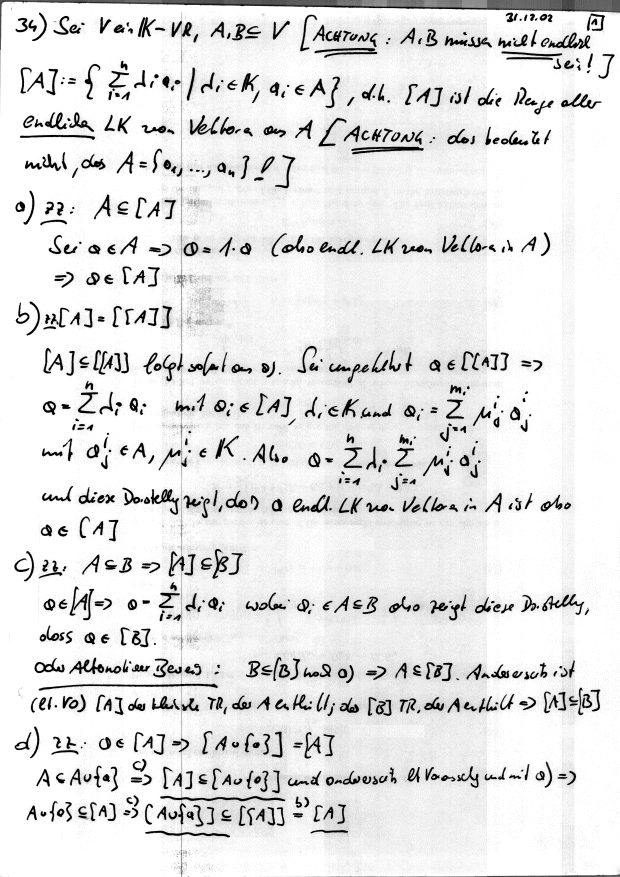 31.12.02 [1]
34) Sei V ein K-VR, A,B ⊆ V [ACHTUNG: A,B müssen nicht endlich
sein!]
[A] := { ∑_{i=1}^{n} λ_i a_i | λ_i ∈ K, a_i ∈ A }, d.h. [A] ist die Menge aller
endlichen LK von Vektoren aus A [ACHTUNG: das bedeutet
nicht, das A = {a_1, ..., a_n} !]
a) zz: A ⊆ [A]
Sei a ∈ A => a = 1·a (also endl. LK von Vektoren in A)
=> a ∈ [A]
b) zz [A] = [[A]]
[A] ⊆ [[A]] folgt sofort aus a). Sei umgekehrt a ∈ [[A]] =>
a = ∑_{i=1}^{n} λ_i a_i mit a_i ∈ [A], λ_i ∈ K und a_i = ∑_{j=1}^{m_i} μ_j^i a_j^i
mit a_j^i ∈ A, μ_j^i ∈ K. Also a = ∑_{i=1}^{n} λ_i ∑_{j=1}^{m_i} μ_j^i a_j^i
und diese Darstellung zeigt, daß a endl. LK von Vektoren in A ist also
a ∈ [A]
c) zz: A ⊆ B => [A] ⊆ [B]
a ∈ [A] => a = ∑_{i=1}^{n} λ_i a_i wobei a_i ∈ A ⊆ B also zeigt diese Darstellung,
dass a ∈ [B].
Oder Alternativer Beweis: B ⊆ [B] nach a) => A ⊆ [B]. Andererseits ist
(lt. VO) [A] der kleinste TR, der A enthält; da [B] TR, der A enthält => [A] ⊆ [B]
d) zz: a ∈ [A] => [A ∪ {a}] = [A]
A ⊆ A ∪ {a} =>^{c)} [A] ⊆ [A ∪ {a}] und andererseits lt Voraussetzung und mit a) =>
A ∪ {a} ⊆ [A] =>^{c)} [A ∪ {a}] ⊆ [[A]] =^{b)} [A]